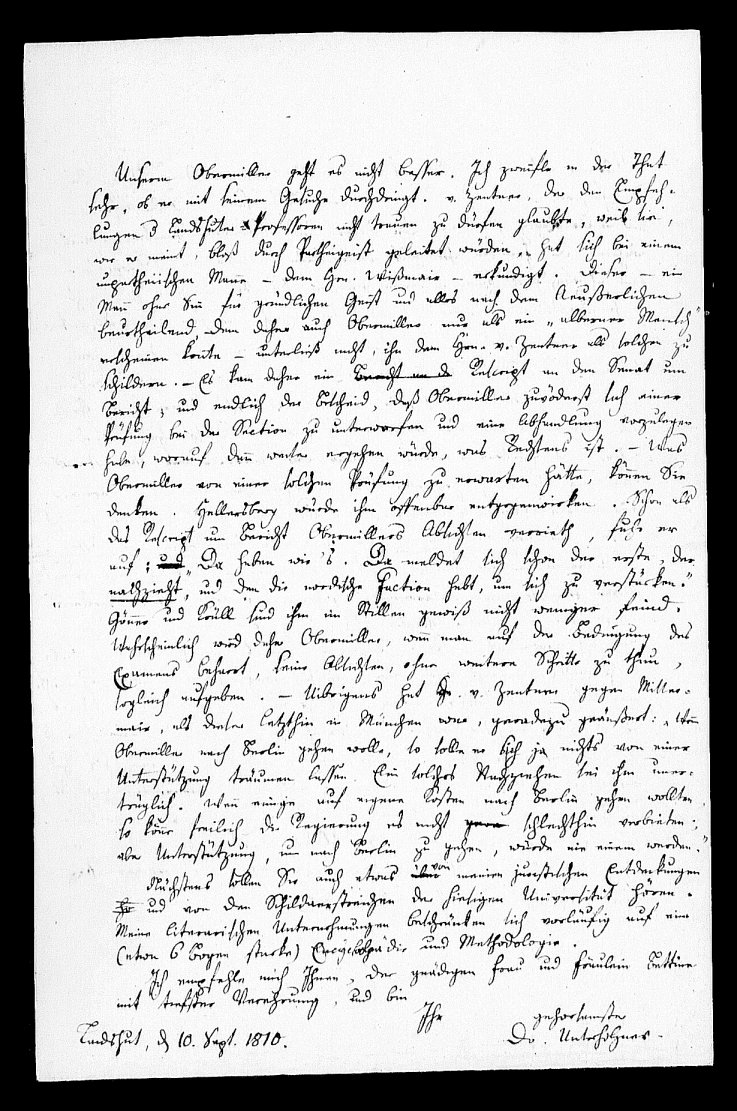 Unserm Obermiller geht es nicht besser. Ich zweifle in der That
sehr, ob er mit seinem Gesuche durchdringt. v. Zentner, der den Empfeh-
lungen d Landshuter Professoren nicht trauen zu dürfen glaubte, weil sie,
wie er meint, bloß durch Partheigeist geleitet würden, hat sich bei einem
unpartheiischen Mann – dem Hrn. Wißmair – erkundigt. Dieser – ein
Mann ohne Sinn für gründlichen Geist und alles nach dem Aeußerlichen
beurtheilend, dem daher auch Obermiller nur als ein „alberner Mensch"
erscheinen konnte – unterließ nicht, ihn dem Hrn. v. Zentner als solchen zu
schildern. – Es kam daher ein Bericht an d Rescript an den Senat um
Bericht, und endlich der Bescheid, daß Obermiller zuvörderst sich einer
Prüfung bei der Section zu unterwerfen und eine Abhandlung vorzulegen
habe, worauf dann weiter ergehen würde, was Rechtens ist. – Was
Obermiller von einer solchen Prüfung zu erwarten hätte, können Sie
denken. Hellersberg würde ihm offenbar entgegenwirken. Schon als
das Rescript um Bericht Obermillers Absichten verrieth, fuhr er
auf: und „Da haben wir's. Da meldet sich schon der erste, der
nachzieht, und den die nordische Faction hebt, um sich zu verstärken."
Gönner und Krüll sind ihm im Stillen gewiß nicht weniger feind.
Wahrscheinlich wird daher Obermiller, wenn man auf der Bedingung des
Examens beharrt, seine Absichten, ohne weitere Schritte zu thun,
sogleich aufgeben. – Uibrigens hat H. v. Zentner gegen Mitter-
mair, als dieser letzthin in München war, geradezu geäußert: „Wenn
Obermiller nach Berlin gehen wolle, so solle er sich ja nichts von einer
Unterstützung träumen lassen. Ein solches Nachziehen sei ihm uner-
träglich. Wenn einige auf eigene Kosten nach Berlin gehen wollten,
so könne freilich die Regierung es nicht gera schlechthin verbieten:
aber Unterstützung, um nach Berlin zu gehen, würde nie einem werden."
Nächstens sollen Sie auch etwas über von meinen juristischen Entdeckungen
und von den Schildaerstreichen der hiesigen Universität hören.
Meine literarischen Unternehmungen beschränken sich vorläufig auf eine
(etwa 6 Bogen starke) Encyclopädie und Methodologie.
Ich empfehle mich Ihnen, der gnädigen Frau und Fräulein Bettine
mit tiefster Verehrung, und bin
Ihr gehorsamster
Landshut, d 10. Sept. 1810. Dr. Unterholzner.